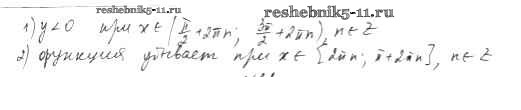 reshebnik5-11.ru
1) y<0 при x∈(π/2+2πn; 3π/2+2πn), n∈Z
reshebnik5-11.ru
2) функция убывает при x∈[2πn; π+2πn], n∈Z